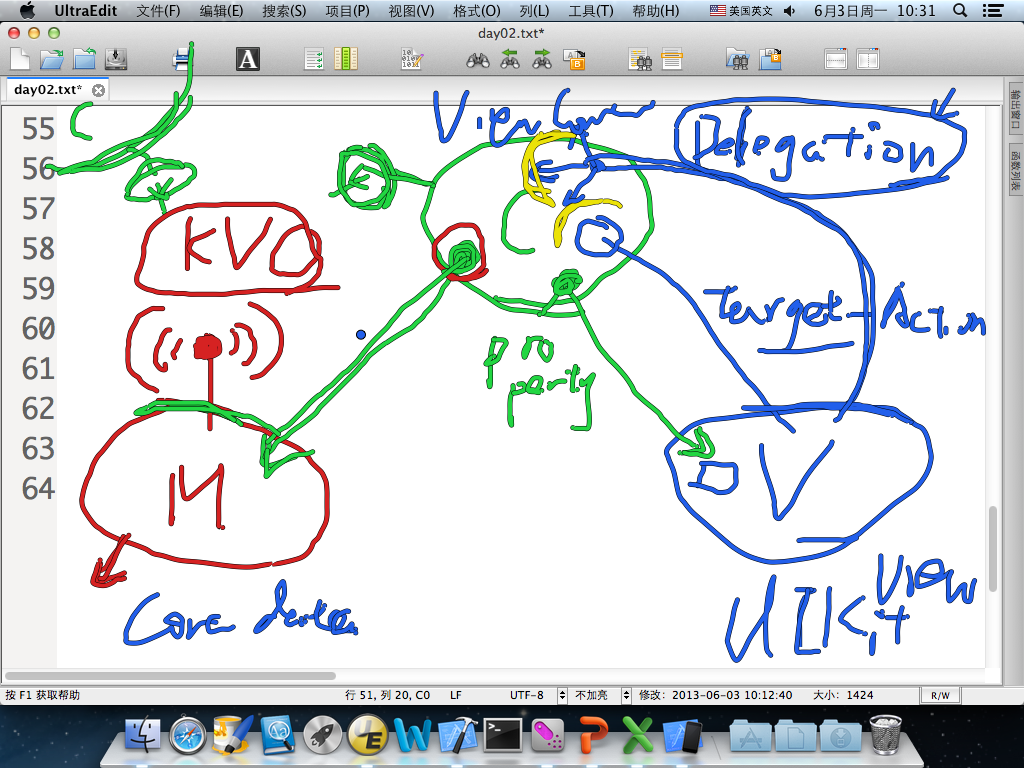 UltraEdit 文件(F) 编辑(E) 搜索(S) 项目(P) 视图(V) 格式(O) 列(L) 工具(T) 帮助(H) 美国英文 6月3日周一 10:31
day02.txt*
day02.txt*
输出窗口
函数列表
55
56
57
58
59
60
61
62
63
64
C
View Con
Delegation
KVO
C
Target-Action
property
M
V
Core
UIKit
View
按 F1 获取帮助 行 51, 列 20, C0 LF UTF-8 不加亮 修改: 2013-06-03 10:12:40 大小: 1424 R/W